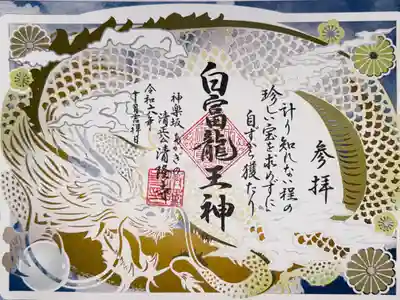 参拝
計り知れない程の
珍しい宝を求めずに
自ずから獲たり
白富龍王神
神楽坂
清隆寺
令和六年
吉祥日